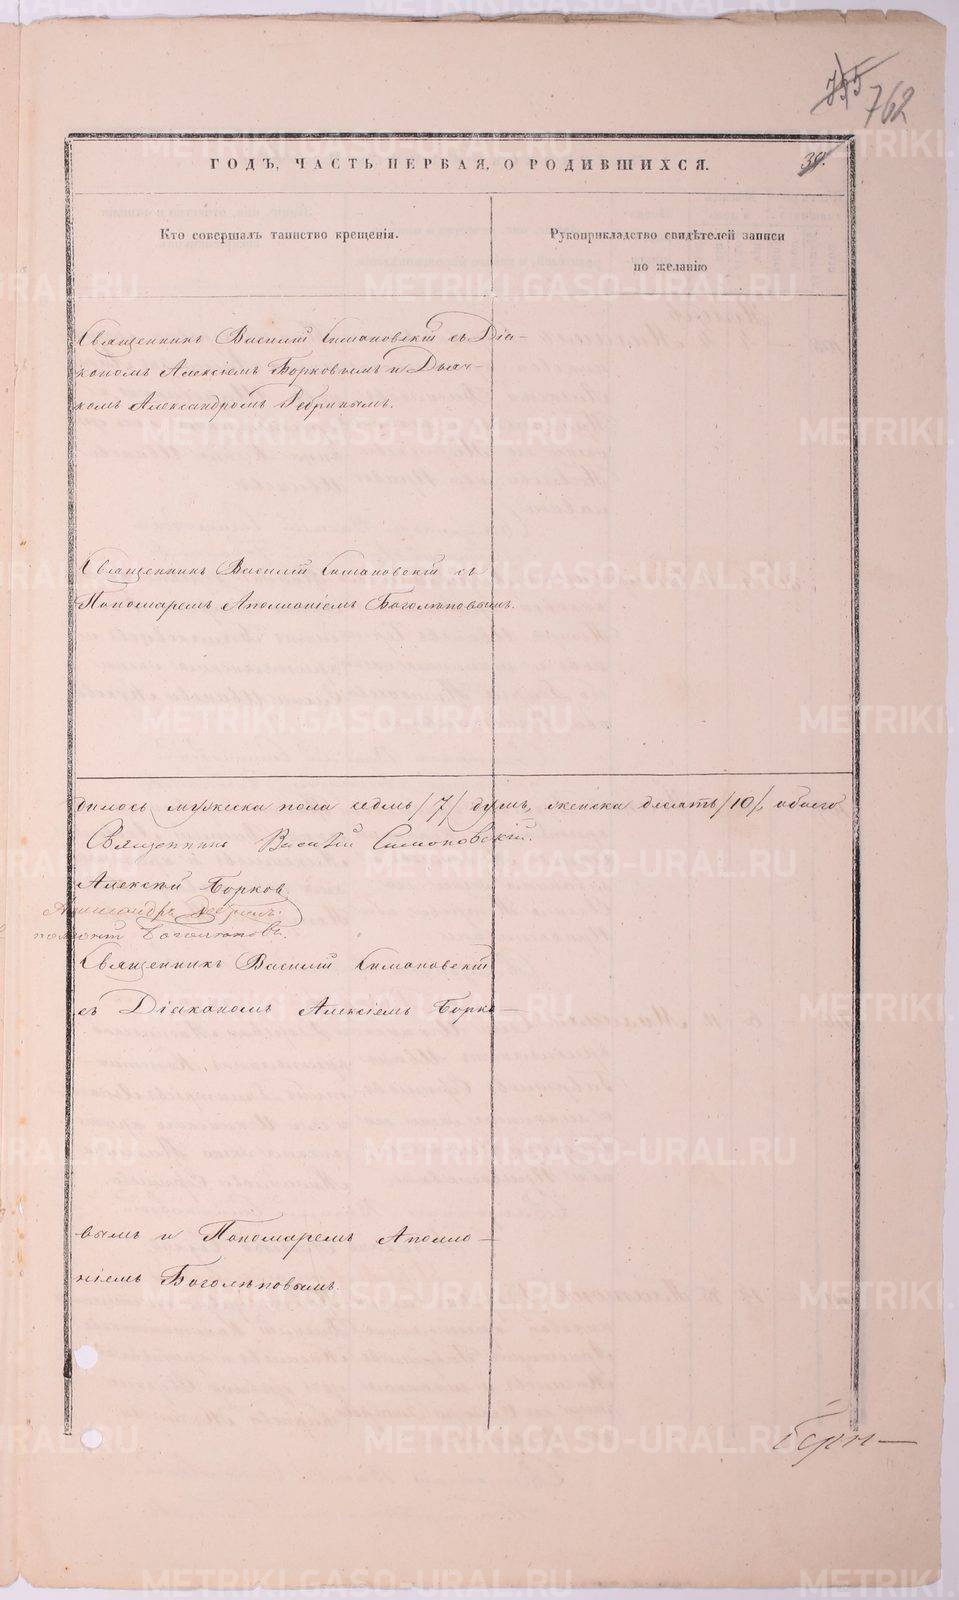 735
762
ГОДЪ, ЧАСТЬ ПЕРВАЯ, О РОДИВШИХСЯ.
39.
Кто совершалъ таинство крещенія.
Рукоприкладство свидѣтелей записи
по желанію
Священникъ Василій Симановскій съ Діа-
кономъ Алексіемъ Борковымъ и Дьяч-
комъ Александромъ
Священникъ Василій Симановскій съ
Пономаремъ Аполлоніемъ Боголѣповымъ.
дилось мужеска пола седмь /7/ душъ, женска десять /10/, обоего
Священникъ Василій Симановскій.
Алексѣй Борковъ
Александръ
Боголѣповъ.
Священникъ Василій Симановскій
съ Діакономъ Алексіемъ Борко-
вымъ и Пономаремъ Аполло-
ніемъ Боголѣповымъ.
METRIKI.GASO-URAL.RU